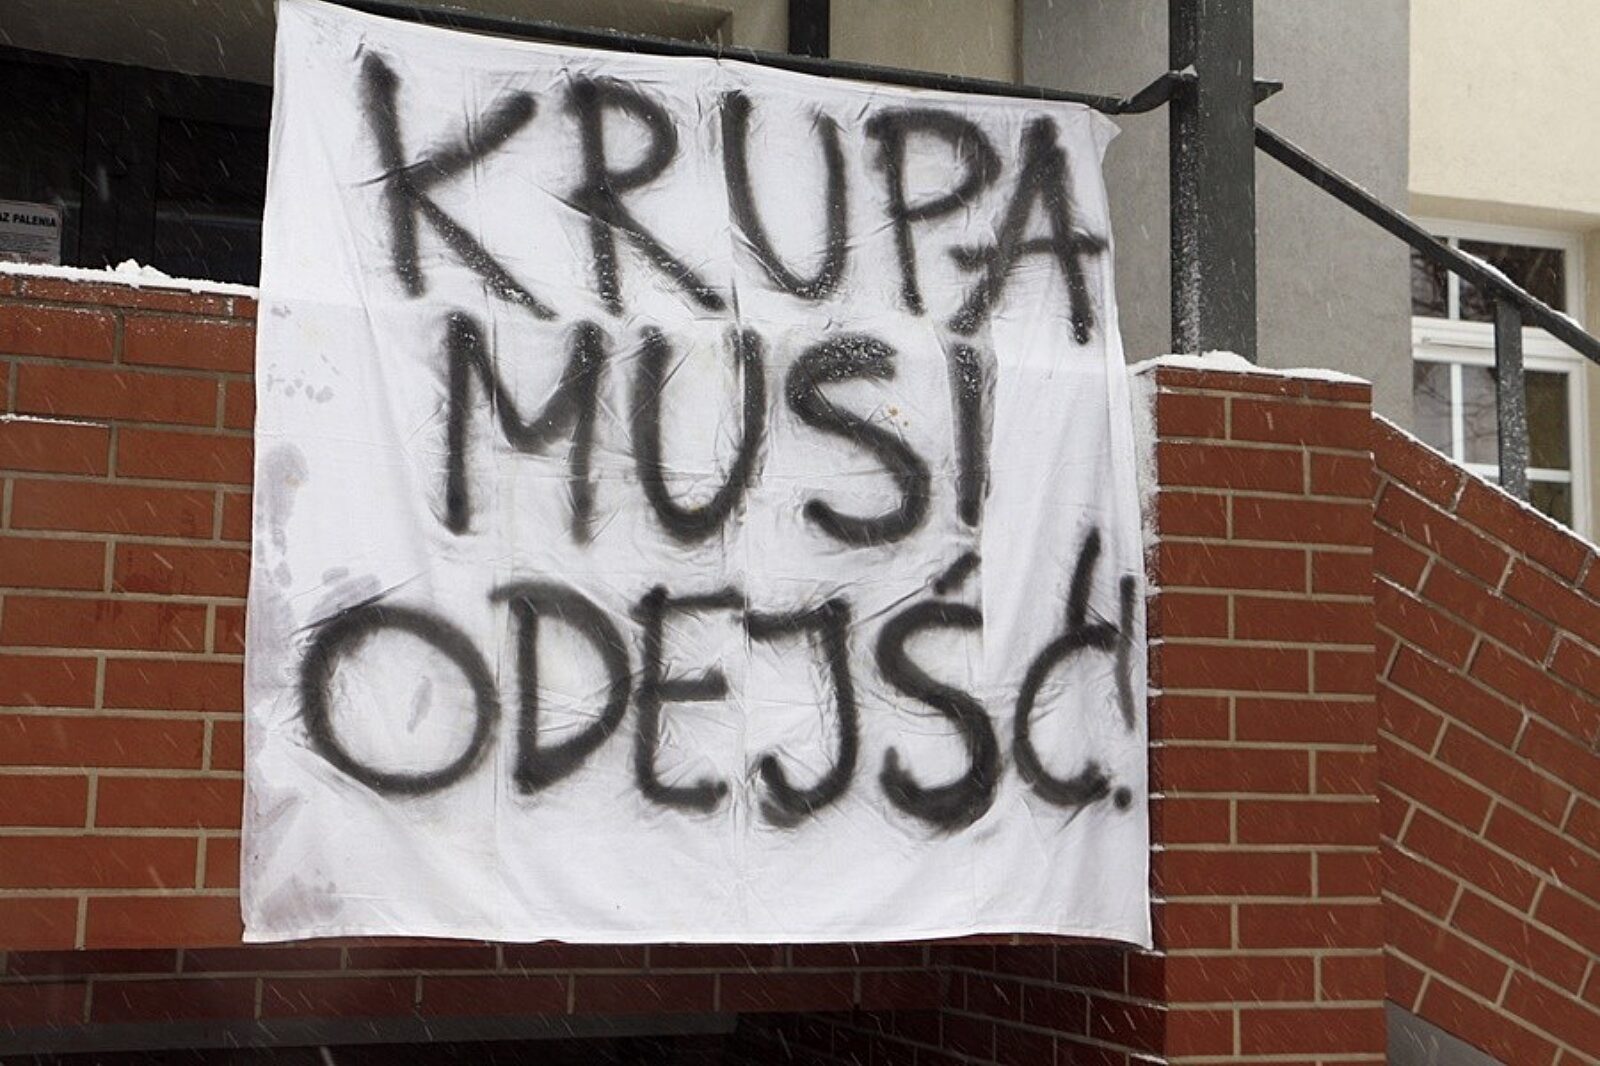 AZ PALENIA
KRUPA
MUSI
ODEJŚĆ!